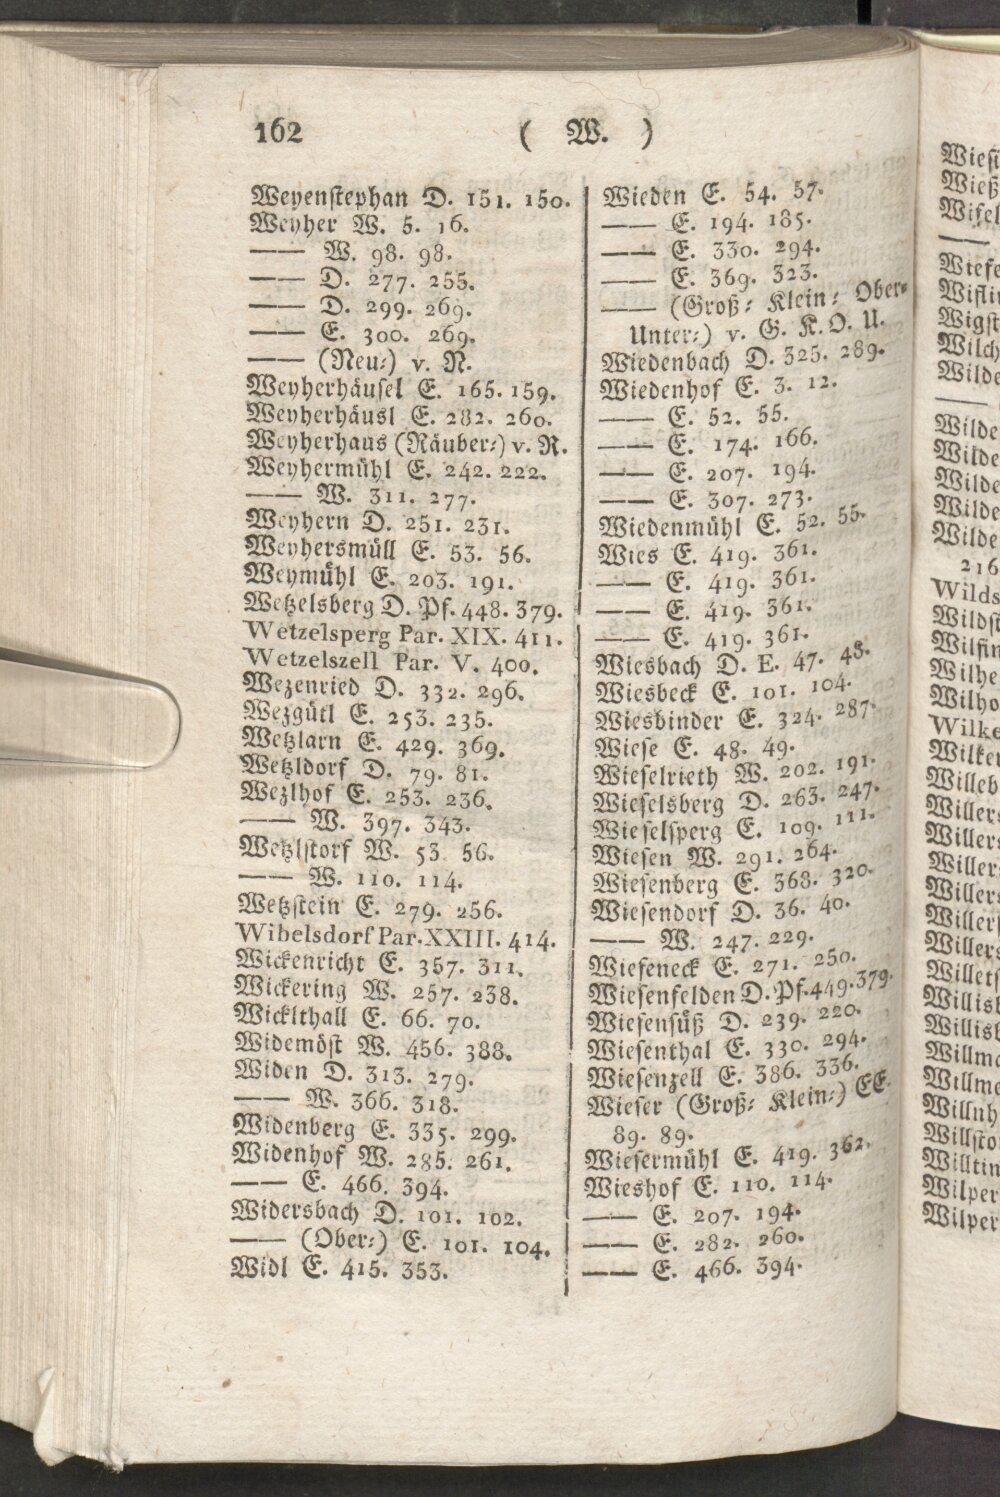 162 ( W. )
Weyenstephan D. 151. 150.
Weyher W. 5. 16.
—— W. 98. 98.
—— D. 277. 255.
—— D. 299. 269.
—— E. 300. 269.
—— (Neu⸗) v. N.
Weyherhäusel E. 165. 159.
Weyherhäusl E. 282. 260.
Weyherhaus (Räuber⸗) v. R.
Weyhermühl E. 242. 222.
—— W. 311. 277.
Weyhern D. 251. 231.
Weyhersmüll E. 53. 56.
Weymühl E. 203. 191.
Wetzelsberg D. Pf. 448. 379.
Wetzelsperg Par. XIX. 411.
Wetzelszell Par. V. 400.
Wezenried D. 332. 296.
Wezgütl E. 253. 235.
Wetzlarn E. 429. 369.
Wetzldorf D. 79. 81.
Wezlhof E. 253. 236.
—— W. 397. 343.
Wetzlstorf W. 53 56.
—— W. 110. 114.
Wetzstein E. 279. 256.
Wibelsdorf Par. XXIII. 414.
Wickenricht E. 357. 311.
Wickering W. 257. 238.
Wicklthall E. 66. 70.
Widemöst W. 456. 388.
Widen D. 313. 279.
—— W. 366. 318.
Widenberg E. 335. 299.
Widenhof W. 285. 261.
—— E. 466. 394.
Widersbach D. 101. 102.
—— (Ober⸗) E. 101. 104.
Widl E. 415. 353.
Wieden E. 54. 57.
—— E. 194. 185.
—— E. 330. 294.
—— E. 369. 323.
—— (Groß⸗ Klein⸗ Ober⸗
Unter⸗) v. G. K. O. U.
Wiedenbach D. 325. 289.
Wiedenhof E. 3. 12.
—— E. 52. 55.
—— E. 174. 166.
—— E. 207. 194.
—— E. 307. 273.
Wiedenmühl E. 52. 55.
Wies E. 419. 361.
—— E. 419. 361.
—— E. 419. 361.
—— E. 419. 361.
Wiesbach D. E. 47. 48.
Wiesbeck E. 101. 104.
Wiesbinder E. 324. 287.
Wiese E. 48. 49.
Wieselrieth W. 202. 191.
Wieselsberg D. 263. 247.
Wieselsperg E. 109. 111.
Wiesen W. 291. 264.
Wiesenberg E. 368. 320.
Wiesendorf D. 36. 40.
—— W. 247. 229.
Wieseneck E. 271. 250.
Wiesenfelden D. Pf. 449. 379.
Wiesensüß D. 239. 220.
Wiesenthal E. 330. 294.
Wiesenzell E. 386. 336.
Wieser (Groß⸗ Klein⸗) EE.
89. 89.
Wiesermühl E. 419. 362.
Wieshof E. 110. 114.
—— E. 207. 194.
—— E. 282. 260.
—— E. 466. 394.